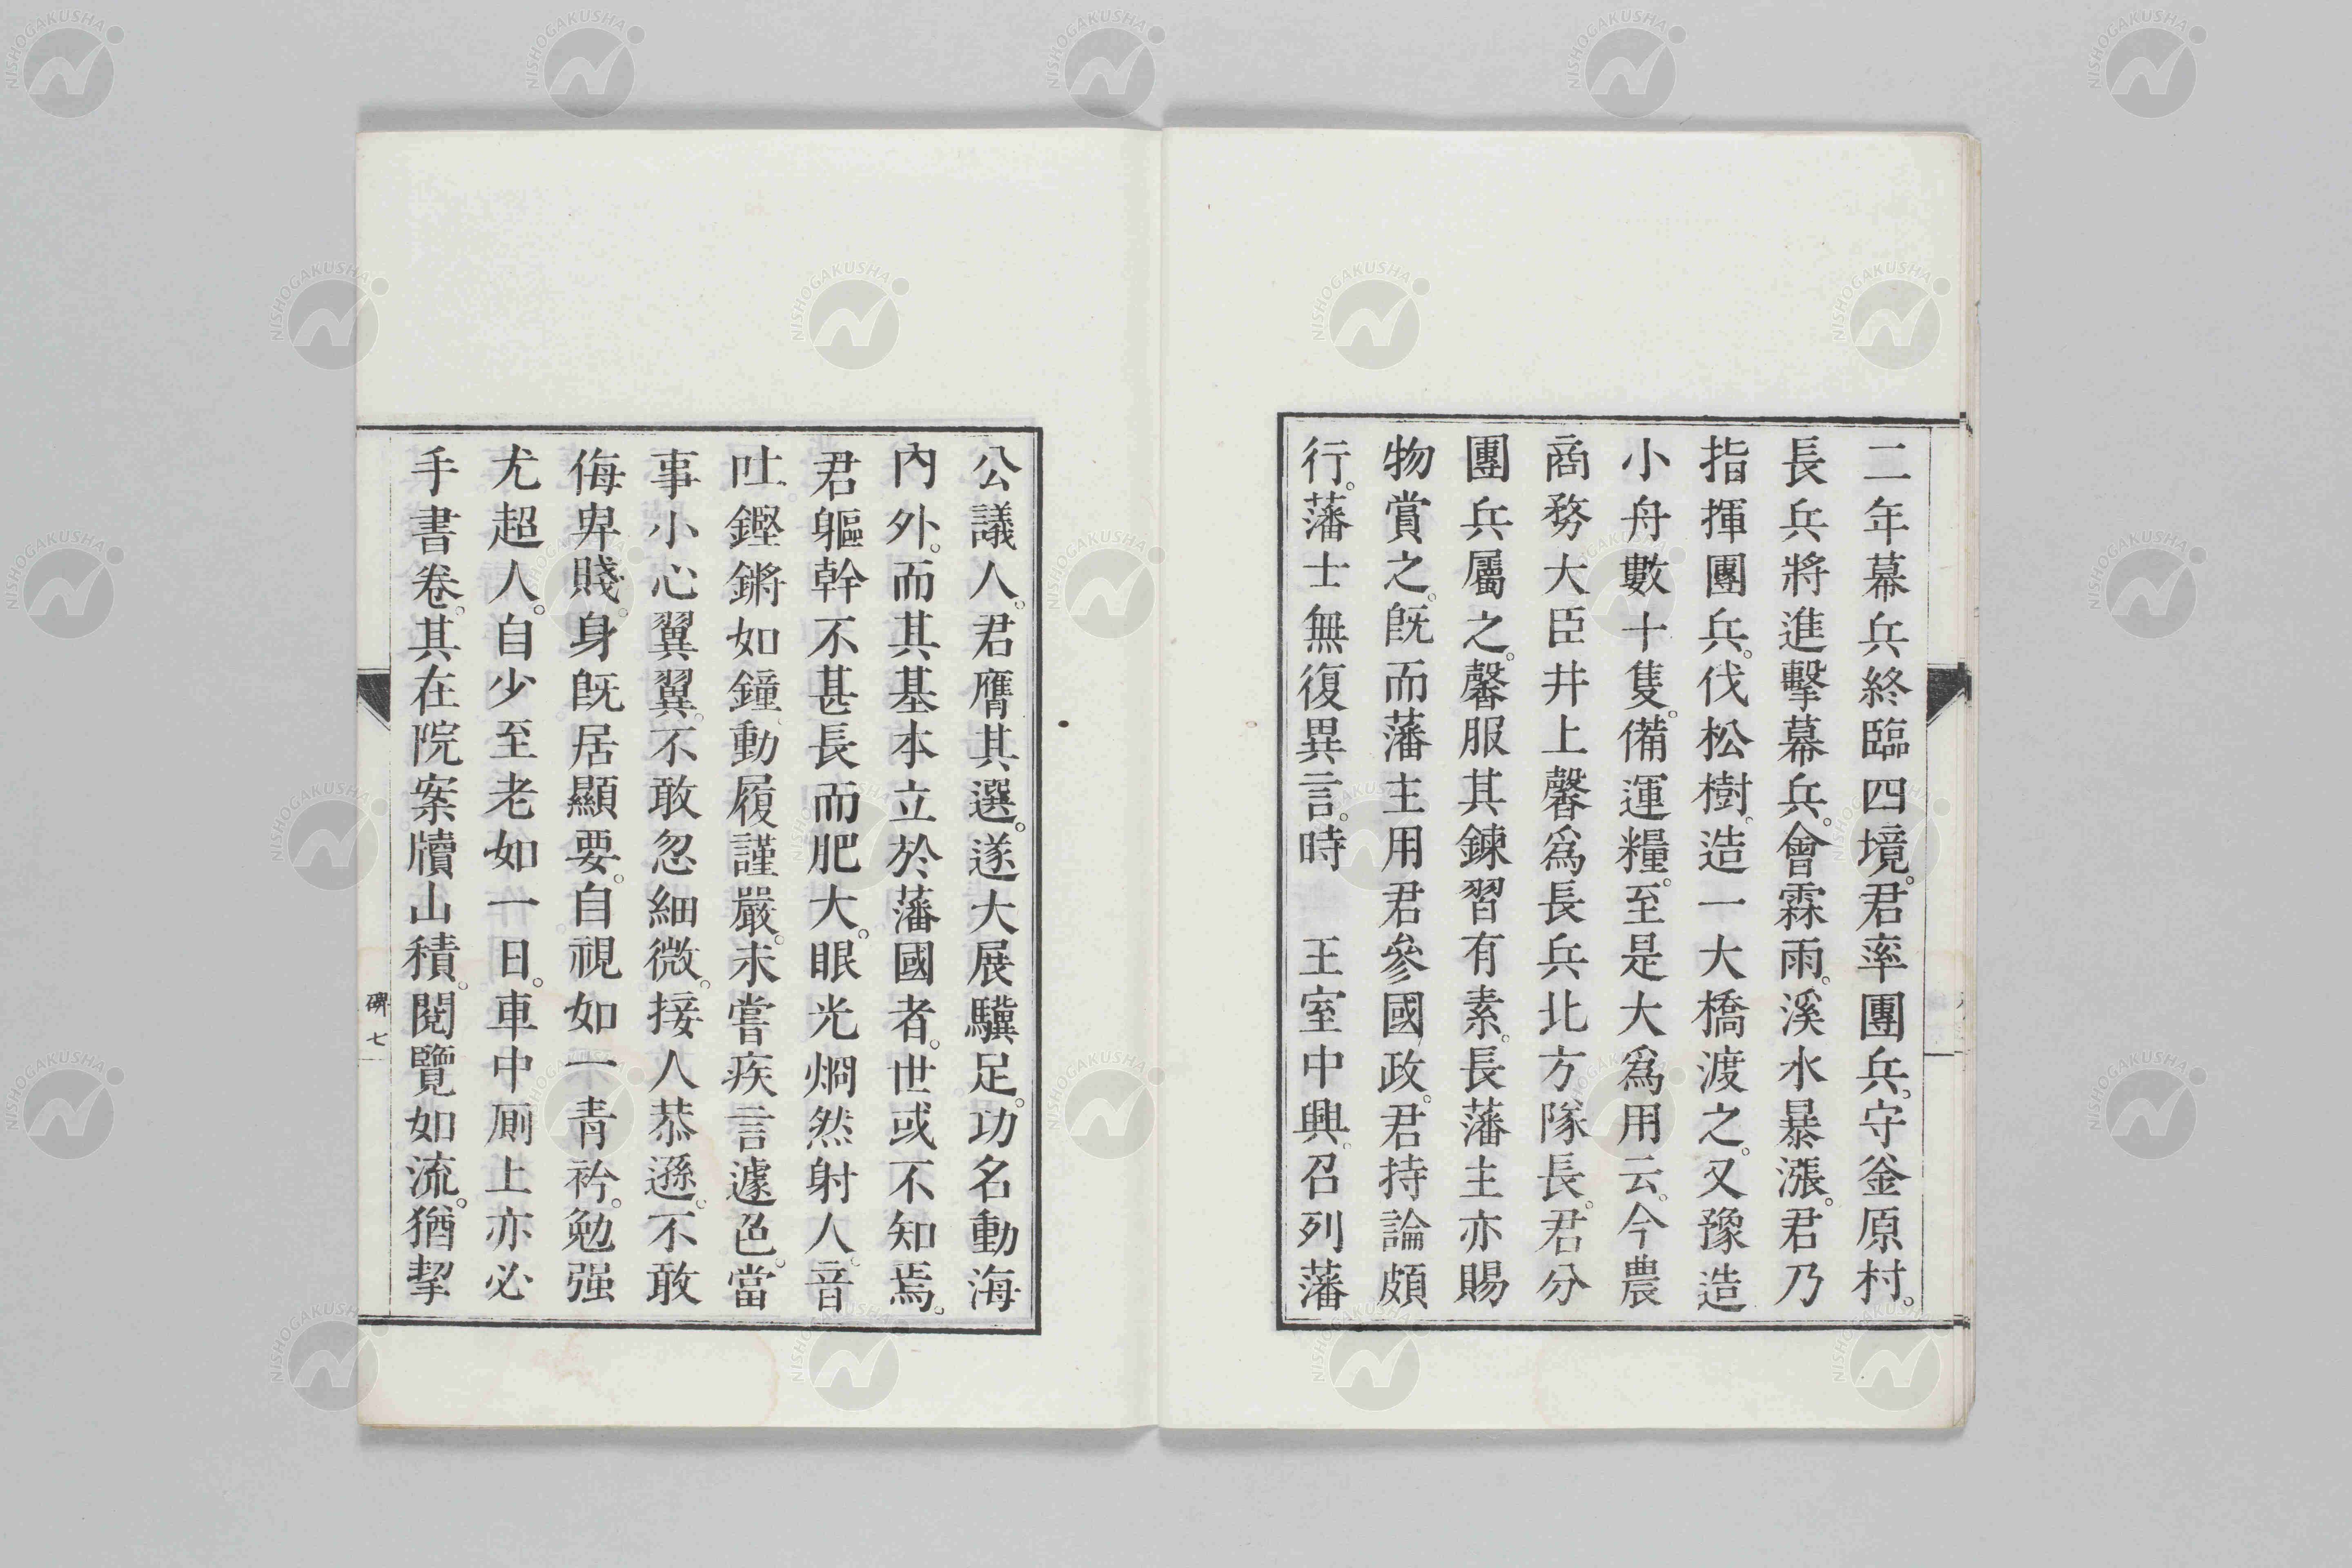 二年幕兵終臨四境。君率團兵。守釜原村。
長兵將進擊幕兵。會霖雨。溪水暴漲。君乃
指揮團兵。伐松樹。造一大橋渡之。又豫造
小舟數十隻。備運糧。至是大爲用云。今農
商務大臣井上馨爲長兵北方隊長。君分
團兵屬之。馨服其鍊習有素。長藩主亦賜
物賞之。既而藩主用君參國政。君持論頗
行。藩士無復異言。時　王室中興。召列藩
公議人。君膺其選。遂大展驥足。功名動海
內外。而其基本立於藩國者。世或不知焉。
君軀幹不甚長而肥大。眼光烱然射人。音
吐鏗鏘如鐘、動履謹嚴。未嘗疾言遽色。當
事小心翼翼。不敢忽細微。接人恭遜。不敢
侮卑賤。身既居顯要。自視如一靑衿。勉强
尤超人。自少至老如一日。車中厠上亦必
手書卷。其在院案牘山積。閱覽如流。猶挈
碑 七
NISHOGAKUSHA